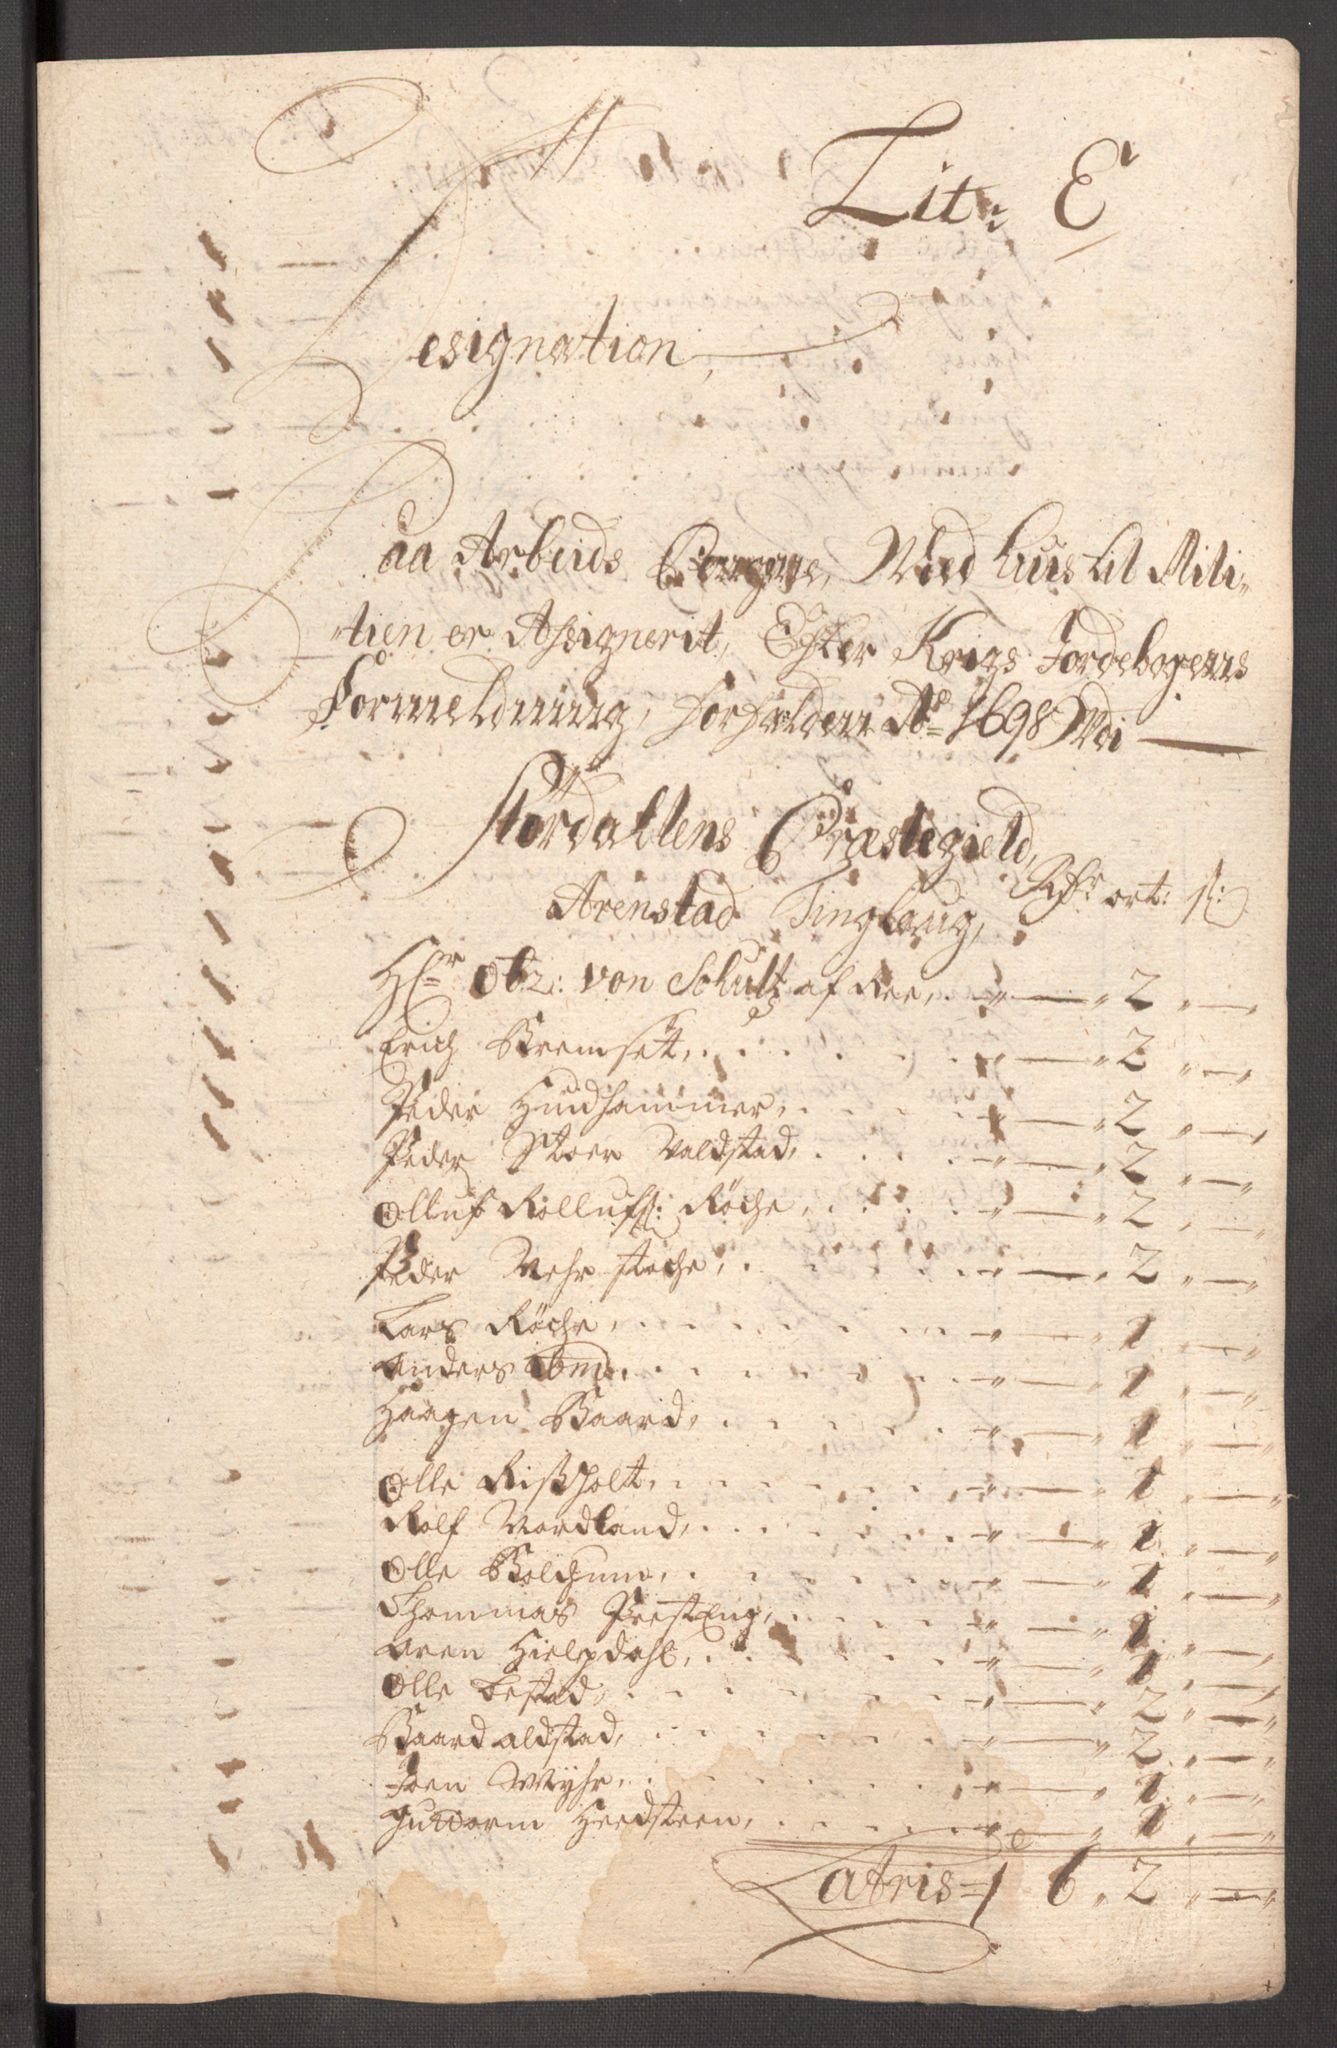 Lit: E
Designation,
Paa Arbeids Pengene, Med huis til Mili-
tien er Assignerit, Efter Krigs Jordebogens
Formeldning, forfalden Ao 1698 Udi
Størdallens Præstegield,
Arenstad Tinglaug, Rdr ort: s:
Hr Obr: von Schultz af Ree, . " — " 2 " —
Erich Bremset, . . . " — " 2 " — "
Peder Hundhammer, . . . " — " 2 " — "
Peder Stoer Valdstad, . . . " — " 2 " — "
Olluf Rollufs: Röche, . . . " — " 2 " — "
Peder Mehr Röche, . . . " — " 2 " — "
Lars Röche, . . . " — " 1 " — "
Anders ibm, . . . " — " 1 " — "
Haagen Baard, . . . " — " 1 " — "
Olle Rißholt, . . . " — " 1 " — "
Rolf Nordland, . . . " — " 1 " — "
Olle Bolchune, . . . " — " 1 " — "
Thommas PrestEng, . . . " — " 1 " — "
Aren Hielpdahl, . . . " — " 1 " — "
Olle Lestad, . . . " — " 2 " — "
Baard Aldstad, . . . " — " 2 " — "
Joen Myhr, . . . " — " 1 " — "
Guttorm Heedsteen, . . . " — " 1 " — "
Latris = 6 " 2 " — "